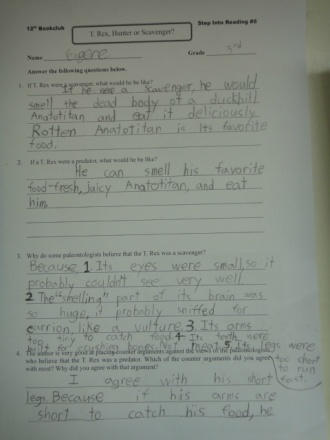 12th Bookclub
Step Into Reading #5
T. Rex, Hunter or Scavenger?
Name Eugene Grade 3rd
Answer the following questions below.
1. If T. Rex were a scavenger, what would he be like?
If he were a Scavenger, he would
smell the dead body of a duckbill
Anatotitan and eat it deliciously.
Rotten Anatotitan is Its favorite
food.
2. If a T. Rex were a predator, what would he be like?
He can smell his favorite
food-fresh, juicy Anatotitan, and eat
him.
3. Why do some paleontologists believe that the T. Rex was a scavenger?
Because 1. Its eyes were small, so it
probably couldn't see very well
2 The "smelling" part of its brain was
so huge, it probably sniffed for
carrion, like a vulture 3. Its arms
too tiny to catch food 4. Its teeth were
built for crushing bones, Not meat 5. Its legs were
too short
to run
fast.
4. The author is very good at placing counter arguments against the views of the paleontologists
who believe that the T. Rex was a predator. Which of the counter arguments did you agree
with most? Why did you agree with that argument?
I agree with his short
legs. Because if his arms are
short to catch his food, he